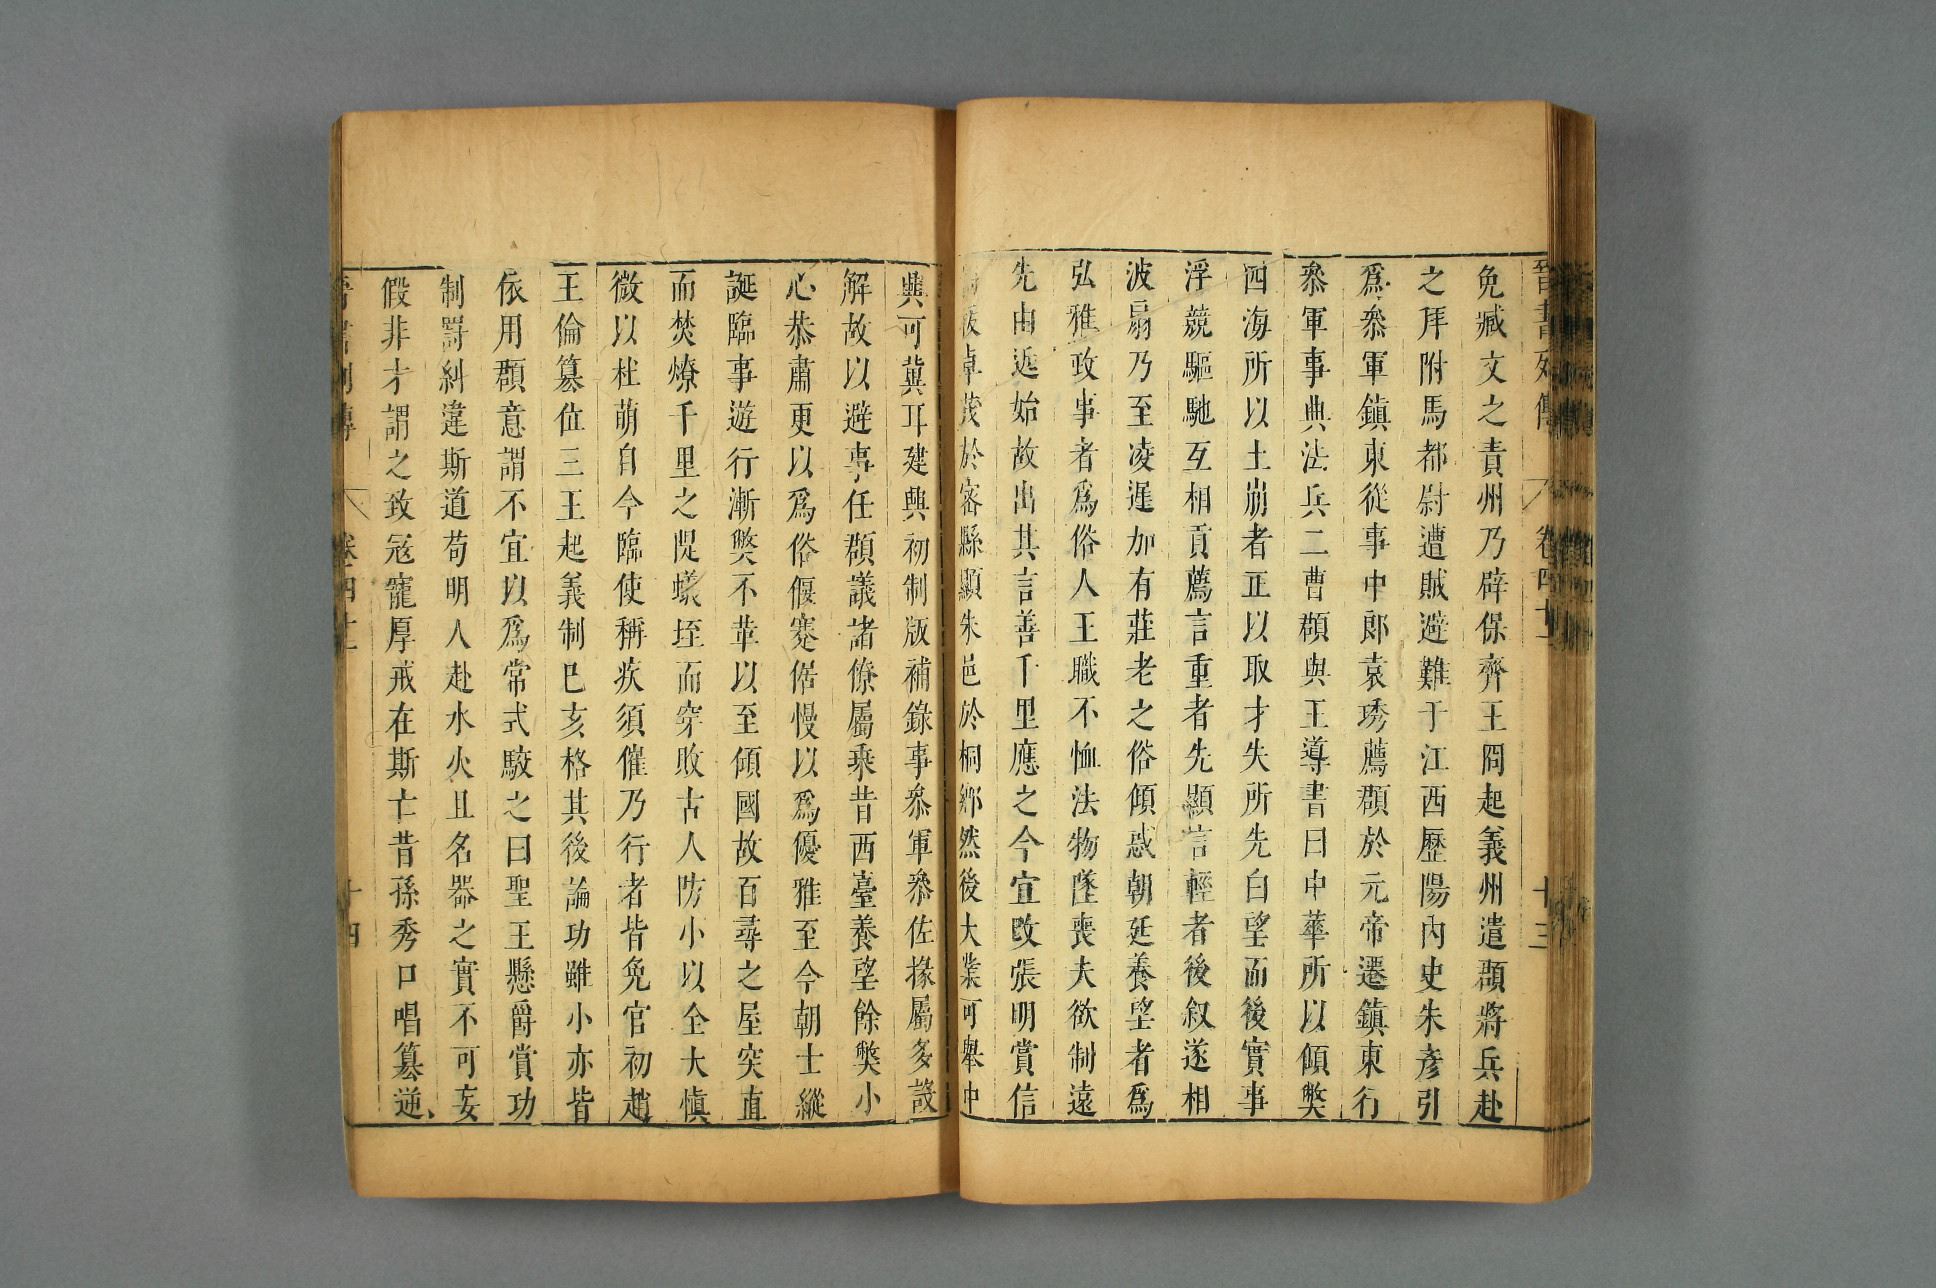 晉書列傳 卷四十一 十三
免臧文之責州乃辟保齊王冏起義州遣頵將兵赴
之拜附馬都尉遭賊避難于江西歷陽內史朱彥引
爲叅軍鎮東從事中郎袁琇薦頵於元帝遷鎮東行
叅軍事典法兵二曹頵與王導書曰中華所以傾獘
四海所以土崩者正以取才失所先白望而後實事
浮競驅馳互相貢薦言重者先顯言輕者後叙遂相
波扇乃至凌遲加有莊老之俗傾惑朝廷養望者爲
弘雅政事者爲俗人王職不恤法物墜喪夫欲制遠
先由近始故出其言善千里應之今宜改張明賞信
拔卓茂於密縣顯朱邑於桐鄉然後大業可舉中
興可冀耳建興初制版補錄事叅軍叅佐掾屬多設
解故以避事任頵議諸僚屬乘昔西臺養望餘獘小
心恭肅更以爲俗偃蹇倨慢以爲優雅至今朝士縱
誕臨事遊行漸獘不革以至傾國故百尋之屋突直
而焚燎千里之隄蟻垤而穿敗古人防小以全大愼
微以杜萌自今臨使稱疾須催乃行者皆免官初趙
王倫篡位三王起義制己亥格其後論功雖小亦皆
依用頵意謂不宜以爲常式駮之曰聖王懸爵賞功
制罰糾違斯道苟明人赴水火且名器之實不可妄
假非才謂之致寇寵厚戒在斯亡昔孫秀口唱篡逆
晉書列傳 卷四十一 十四